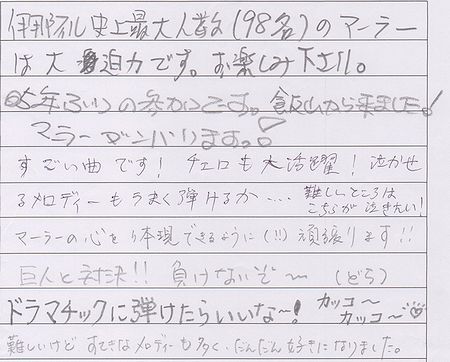 伊那フィル史上最大人数(98名)のマーラー
は大迫力です。お楽しみ下さい。
5年ぶりの参加です。飯山から来ました!
マーラーガンバリますっ。!
すごい曲です! チェロも大活躍! 泣かせ
るメロディーもうまく弾けるか‥‥ 難しいところは
こちらが泣きたい!
マーラーの心を体現できるように(!!)頑張ります!!
巨人と対決!! 負けないぞ〜 (どら)
ドラマチックに弾けたらいいな〜!
カッコ〜
カッコ〜
難しいけど すてきなメロディーも多く、だんだん好きになりました。